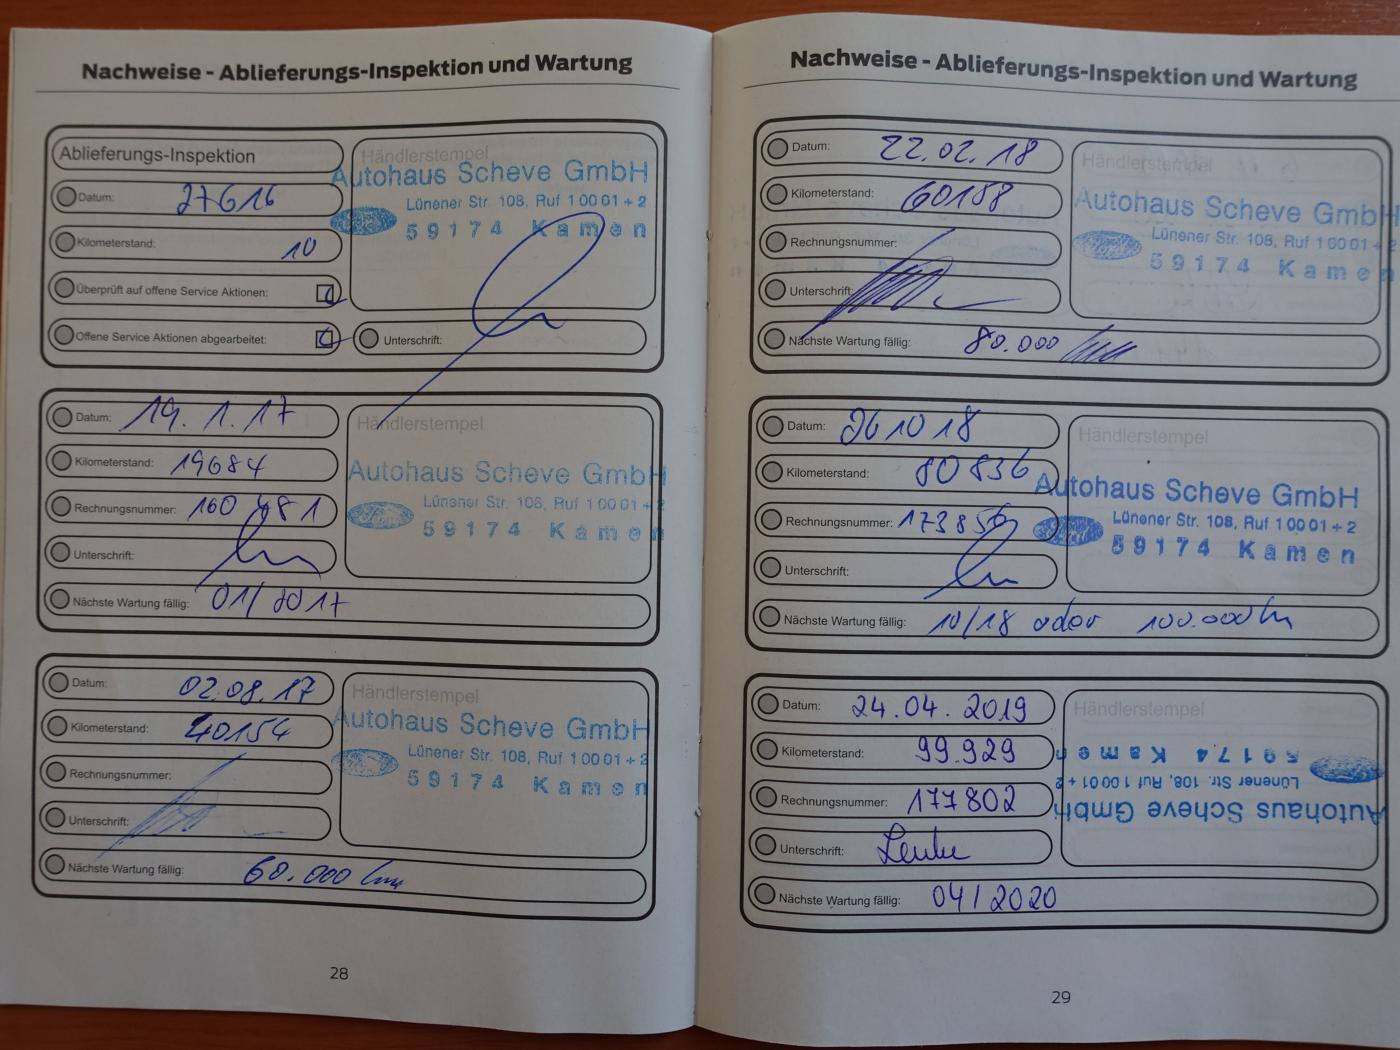 Nachweise - Ablieferungs-Inspektion und Wartung
Ablieferungs-Inspektion
Datum: 27 6 16
Kilometerstand: 10
Überprüft auf offene Service Aktionen:
Offene Service Aktionen abgearbeitet:
Händlerstempel
Autohaus Scheve GmbH
Lünener Str. 108, Ruf 1 00 01 + 2
59174 Kamen
Unterschrift:
Datum: 19. 1. 17
Kilometerstand: 19684
Rechnungsnummer: 160481
Unterschrift:
Nächste Wartung fällig: 01/2017
Händlerstempel
Autohaus Scheve GmbH
Lünener Str. 108, Ruf 1 00 01 + 2
59174 Kamen
Datum: 02.08.17
Kilometerstand: 40154
Rechnungsnummer:
Unterschrift:
Nächste Wartung fällig: 60.000 km
Händlerstempel
Autohaus Scheve GmbH
Lünener Str. 108, Ruf 1 00 01 + 2
59174 Kamen
28
Nachweise - Ablieferungs-Inspektion und Wartung
Datum: 22.02.18
Kilometerstand: 60158
Rechnungsnummer:
Unterschrift:
Nächste Wartung fällig: 80.000
Händlerstempel
Autohaus Scheve GmbH
Lünener Str. 108, Ruf 1 00 01 + 2
59174 Kamen
Datum: 26 10 18
Kilometerstand: 80836
Rechnungsnummer: 173856
Unterschrift:
Nächste Wartung fällig: 10/18 oder 100.000 km
Händlerstempel
Autohaus Scheve GmbH
Lünener Str. 108, Ruf 1 00 01 + 2
59174 Kamen
Datum: 24.04.2019
Kilometerstand: 99.929
Rechnungsnummer: 177802
Unterschrift:
Nächste Wartung fällig: 04/2020
Händlerstempel
Autohaus Scheve GmbH
Lünener Str. 108, Ruf 1 00 01 + 2
59174 Kamen
29